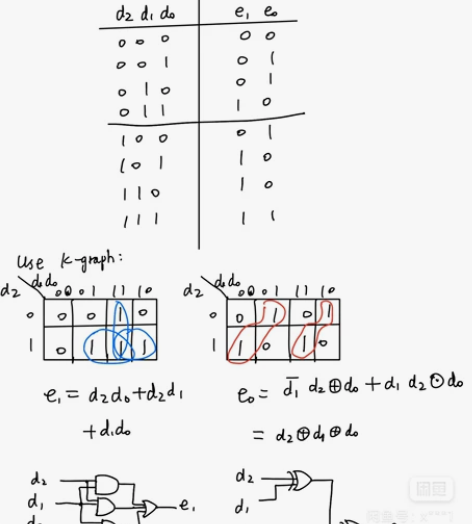 d₂ d₁ d₀ e₁ e₀
0 0 0 0 0
0 0 1 0 1
0 1 0 0 1
0 1 1 1 0
1 0 0 0 1
1 0 1 1 0
1 1 0 1 0
1 1 1 1 1
Use K-graph:
d₂ d₁d₀ 00 01 11 10
0 0 0 1 0
1 0 1 1 1
d₂ d₁d₀ 00 01 11 10
0 0 1 0 1
1 1 0 1 0
e₁ = d₂d₀+d₂d₁
+d₁d₀
e₀ = d̄₁ d₂⊕d₀ + d₁ d₂⊙d₀
= d₂⊕d₁⊕d₀
d₂
d₁
e₁
d₂
d₁